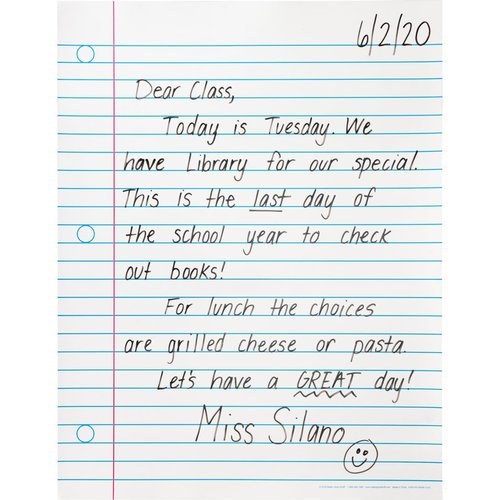 6/2/20
Dear Class,
Today is Tuesday. We
have Library for our special.
This is the last day of
the school year to check
out books!
For lunch the choices
are grilled cheese or pasta.
Let's have a GREAT day!
Miss Silano